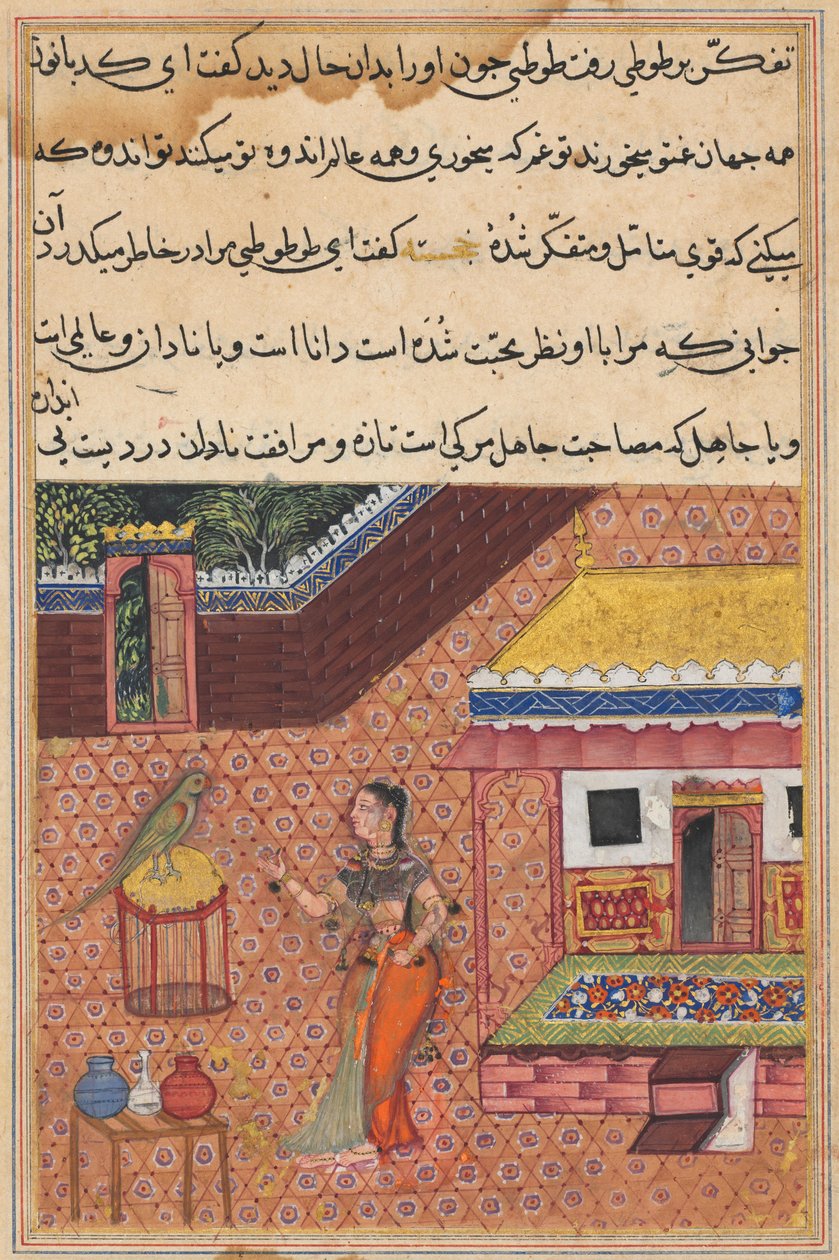 تفکّر بر طوطی رفت طوطی جون او را بدان حال دید کفت ای کدبانو
همه جهان غم تو میخورند تو غم که میخوری و همه عالم اندوه تو میکنند تو اندوه که
میکنی که قوی متامّل و متفکّر شُدهٔ خجسته کفت ای طوطی مرا در خاطر میکذرد آن
جوانی که مرا با او نظر محبّت شُدَه است دانا است و یا نادان و عالم است
و یا جاهل که مصاحبت جاهل مرکی است تازه و مرافقت نادان دردیست بی
اندازه